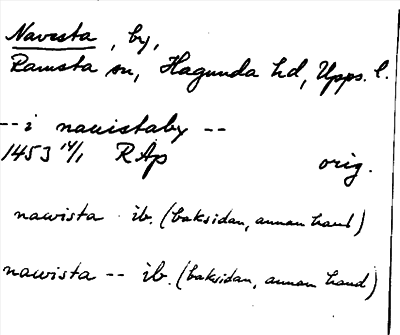 Navesta, by,
Ramsta sn, Hagunda hd, Upps. l.
-- i nauistaby --
1453 14/1 RAp orig.
nawista ib. (baksidan, annan hand)
nawista -- ib. (baksidan, annan hand)